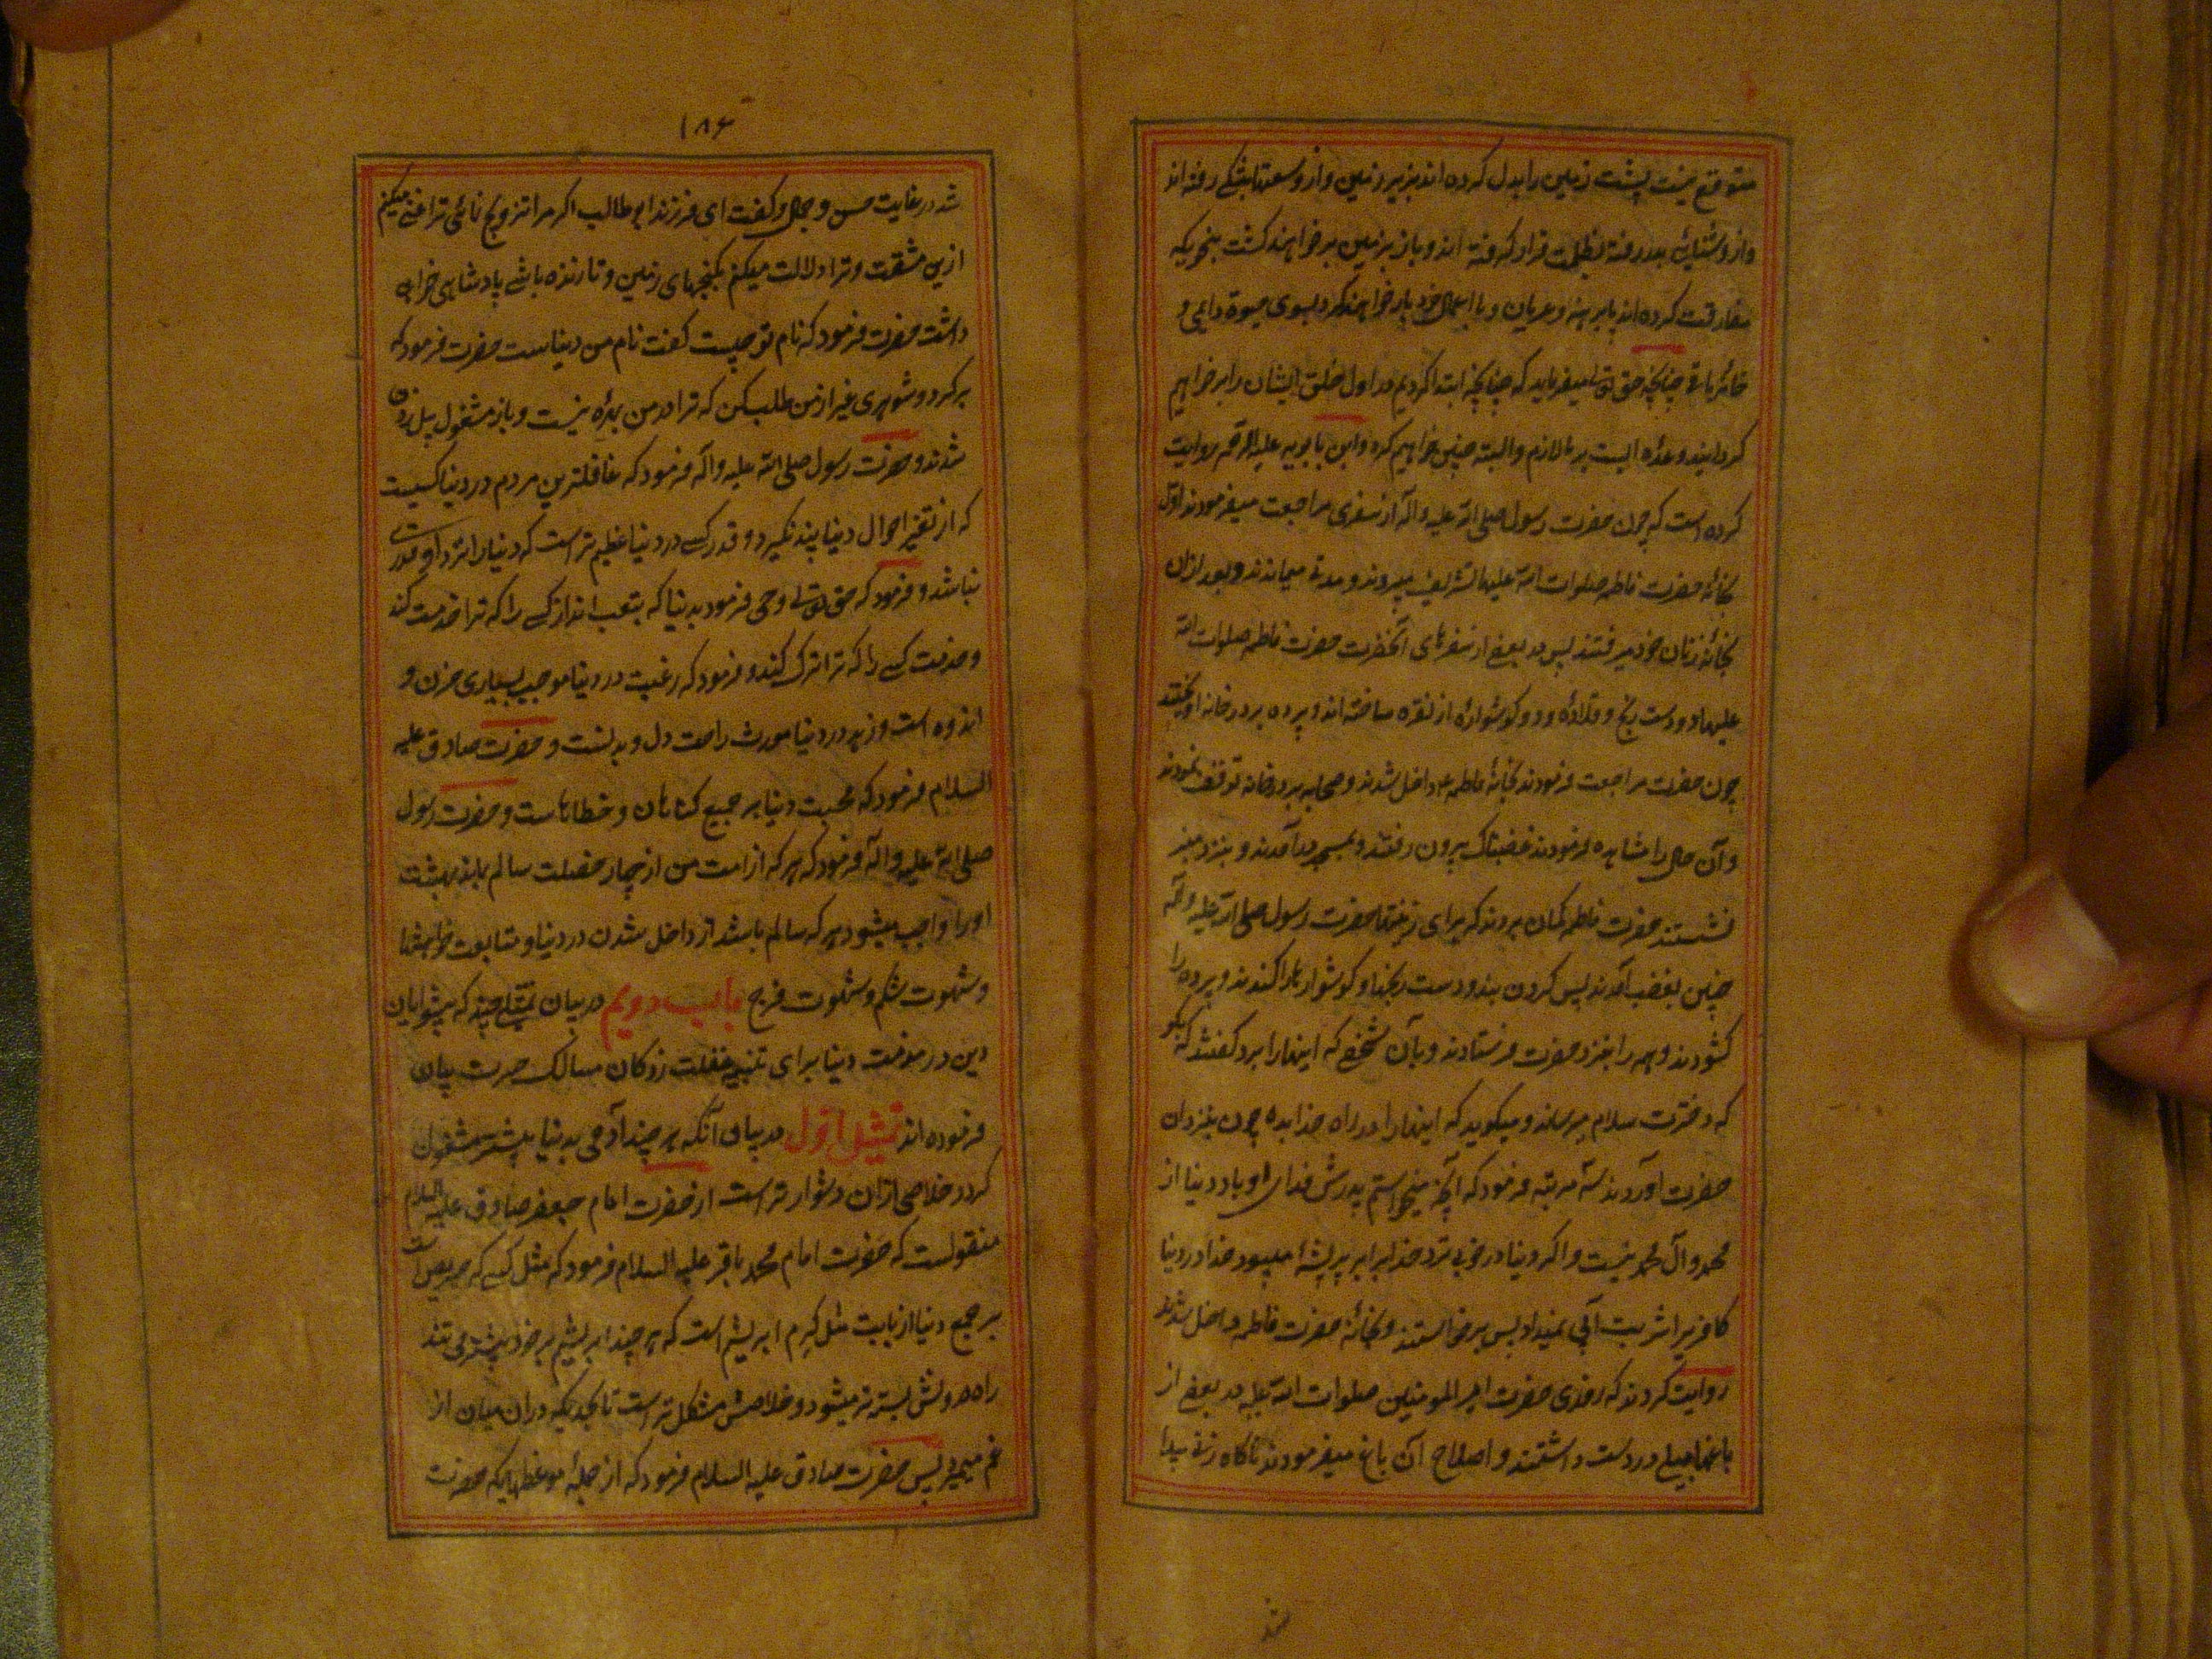 متوقع نیست پشت زمین را بدل کرده اند بزیر زمین و از وسعتها بتنگی رفته اند
و از روشنیائی بدر رفته بظلمت قرار گرفته اند و باز بزمین بر خواهند گشت بنحویکه
مفارقت کرده اند پا برهنه و عریان و با اعمال خود بار خواهند کرد بسوی حیوة دایمی و
خانهٔ باقی چنانچه حق تعالی میفرماید که چنانچه ابتدا کردیم در اول خلق ایشان را بر خواهیم
گردانید وعده ایست بر ما لازم و البته چنین خواهیم کرد و ابن بابویه علیه الرحمه روایت
کرده است که چون حضرت رسول صلی الله علیه و آله از سفری مراجعت میفرمودند اول
بخانهٔ حضرت فاطمه صلوات الله علیها تشریف میبردند و مدتی میماندند و بعد ازان
بخانهٔ زنان خود میرفتند پس در بعضی از سفرهای آنحضرت حضرت فاطمه صلوات الله
علیها دو دست رنج و قلاده و دو گوشواره از نقره ساختند و پرده بر در خانه آویختند
چون حضرت مراجعت فرمودند بخانهٔ فاطمه ع داخل شدند و صحابه بر در خانه توقف نمودند
و آن حال را مشاهده فرمودند غضبناک بیرون رفتند و بمسجد در آمدند و بنزد منبر
نشستند حضرت فاطمه گمان بردند که برای زینتها حضرت رسول صلی الله علیه و آله
چنین بغضب آمدند پس گردن بند و دست رنجها و گوشوارها را کندند و پرده را
گشودند و همه را بنزد حضرت فرستادند و بآن شخصی که اینها را برد گفتند که بگو
که دخترت سلام میرساند و میگوید که اینها را در راه خدا بده چون بنزد آن
حضرت آوردند سه مرتبه فرمود که آنچه میخواستم پدرش فدای او باد دنیا از
محمد و آل محمد نیست و اگر دنیا در خوبی نزد خدا برابر پر پشهٔ میبود خدا در دنیا
کافریرا شربت آبی نمیداد پس برخواستند و بخانهٔ حضرت فاطمه داخل شدند
روایت کردند که روزی حضرت امیر المومنین صلوات الله علیه در بعضی از
باغها بیلی در دست داشتند و اصلاح آن باغ میفرمودند ناگاه زنی پیدا
۱۸۶
شد در غایت حسن و جمال و گفت ای فرزند ابو طالب اگر مرا تزویج نمائی ترا غنی میکنم
ازین مشقت و ترا دلالت میکنم بگنجهای زمین و تا زنده باشی پادشاهی خواهی
داشت حضرت فرمود که نام تو چیست گفت نام من دنیاست حضرت فرمود که
برگرد و شوهری غیر از من طلب کن که ترا در من بهره نیست و باز مشغول بیل زدن
شدند و حضرت رسول صلی الله علیه و آله فرمود که غافلترین مردم در دنیا کسیست
که از تغیر احوال دنیا پند نگیرد و قدر کسی در دنیا عظیم تر است که دنیا را نزد او قدری
نباشد و فرمود که حق تعالی وحی فرمود بدنیا که بتعب انداز کسی را که ترا خدمت کند
و خدمت کسی را که ترا ترک کند و فرمود که رغبت در دنیا موجب بسیاری حزن و
اندوه است و زهد در دنیا مورث راحت دل و بدنست و حضرت صادق علیه
السلام فرمود که محبت دنیا سر جمیع گناهان و خطاهاست و حضرت رسول
صلی الله علیه و اله فرمود که هر که از امت من از چهار خصلت سالم بماند بهشت
او را واجب میشود هر که سالم باشد از داخل شدن در دنیا و متابعت خواهشها
و شهوت شکم و شهوت فرج باب دویم در بیان تمثیلی چند که پیشوایان
دین در مذمت دنیا برای تنبیه غفلت زدگان مسالک حیرت بیان
فرموده اند تمثیل اول در بیان آنکه هر چند آدمی بدنیا بیشتر مشغول
گردد خلاصی ازان دشوار تر است از حضرت امام جعفر صادق علیه السلام
منقولست که حضرت امام محمد باقر علیه السلام فرمود که مثل کسی که حریص است
بر جمع دنیا از بابت مثل کرم ابریشم است که هر چند ابریشم بر خود بیشتر می تند
راه بیرونش بسته تر میشود و خلاصش مشکل تر است تا بحدیکه دران میان از
غم میمیرد پس حضرت صادق علیه السلام فرمود که از جملهٔ موعظهائیکه حضرت